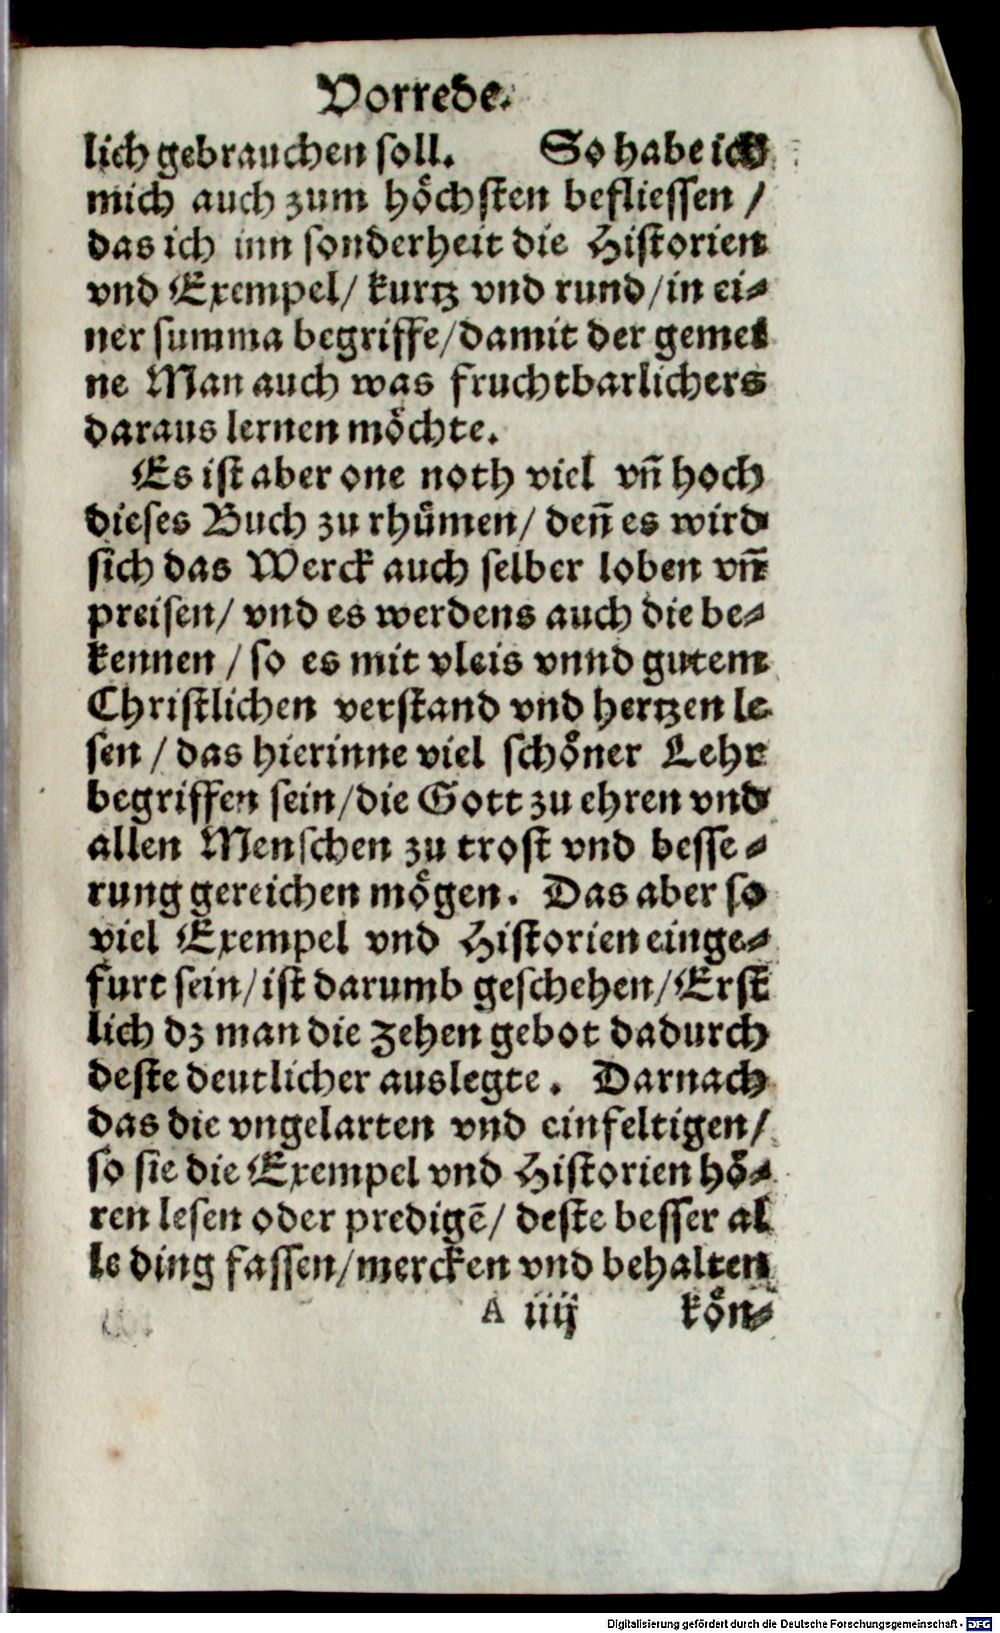 Vorrede.
lich gebrauchen soll. So habe ich
mich auch zum hoͤchsten befliessen /
das ich inn sonderheit die Historien
vnd Exempel/ kurtz vnd rund/in ei⸗
ner summa begriffe/damit der gemei
ne Man auch was fruchtbarlichers
daraus lernen moͤchte.
Es ist aber one noth viel vñ hoch
dieses Buch zu rhuͤmen/ deñ es wird
sich das Werck auch selber loben vñ
preisen/ vnd es werdens auch die be⸗
kennen / so es mit vleis vnnd gutem
Christlichen verstand vnd hertzen le⸗
sen / das hierinne viel schoͤner Lehr
begriffen sein/die Gott zu ehren vnd
allen Menschen zu trost vnd besse⸗
rung gereichen moͤgen. Das aber so
viel Exempel vnd Historien einge⸗
furt sein/ist darumb geschehen/Erst
lich dz man die zehen gebot dadurch
deste deutlicher auslegte. Darnach
das die vngelarten vnd einfeltigen/
so sie die Exempel vnd Historien hoͤ⸗
ren lesen oder predigē/ deste besser al
le ding fassen/mercken vnd behalten
A iiij koͤn⸗
Digitalisierung gefördert durch die Deutsche Forschungsgemeinschaft - DFG